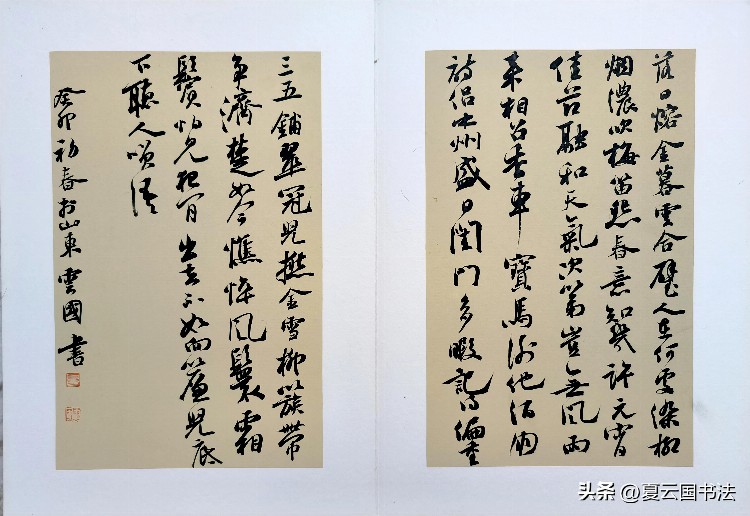 落日熔金暮雲合璧人在何處染柳
烟濃吹梅笛怨春意知幾許元宵
佳节融和天氣次第豈無風雨
来相召香車寶馬謝他酒朋
詩侣中州盛日閨門多暇記得偏重
三五鋪翠冠兒撚金雪柳簇帶
争濟楚如今憔悴風鬟霜
鬢怕見夜间出去不如向簾兒底
下聽人笑語
癸卯初春於山東雲國書
头条 @夏云国书法